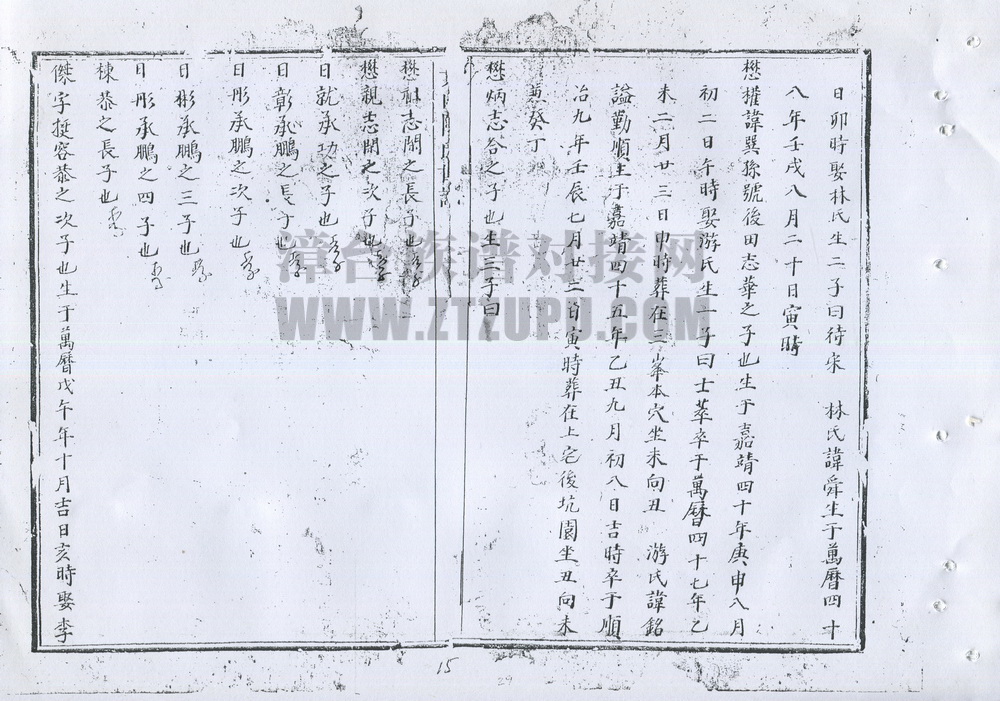 日卯時娶林氏生二子曰待宋 林氏諱舜生于萬曆四十
八年壬戌八月二十日寅時
懋權諱冀孫號後田志華之子也生于嘉靖四十年庚申八月
初二日午時娶游氏生一子曰士萃卒于萬曆四十七年乙
未二月廿三日申時葬在三峯本穴坐未向丑 游氏諱銘
謚勤順生于嘉靖四十五年乙丑九月初八日吉時卒于順
冶九年壬辰七月廿三日寅時葬在上宅後坑園坐丑向未
兼癸丁
懋炳志答之子也生三子曰
懋祖志閣之長子也
懋親志閣之次子也
日就承功之子也
日彰承鵬之長子也
日彤承鵬之次子也
日彬承鵬之三子也
日彤承鵬之四子也
棟恭之長子也
傑字挺容恭之次子也生于萬曆戊午年十月吉日亥時娶李
漳台族谱对接网
WWW.ZTZUPU.COM
15
29